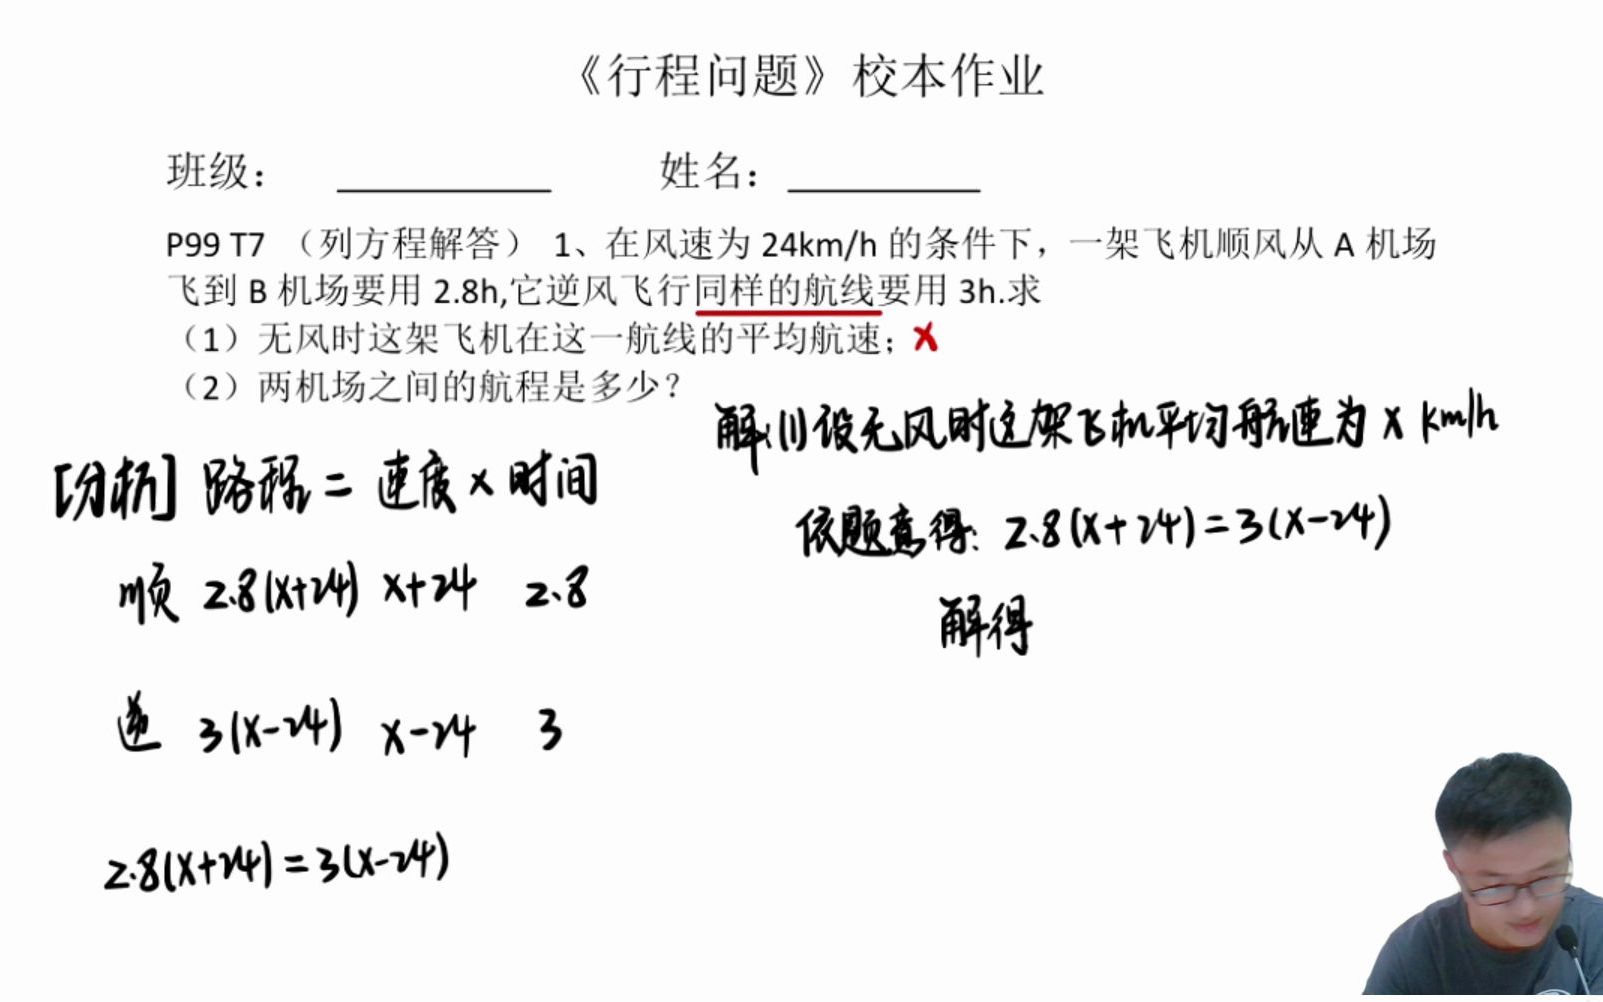 《行程问题》校本作业
班级： 姓名：
P99 T7 （列方程解答） 1、在风速为 24km/h 的条件下，一架飞机顺风从 A 机场
飞到 B 机场要用 2.8h,它逆风飞行同样的航线要用 3h.求
（1）无风时这架飞机在这一航线的平均航速；x
（2）两机场之间的航程是多少？
[分析] 路程 = 速度 × 时间
顺 2.8(x+24) x+24 2.8
逆 3(x-24) x-24 3
2.8(x+24)=3(x-24)
解:(1)设无风时这架飞机平均航速为 x km/h
依题意得: 2.8(x+24)=3(x-24)
解得